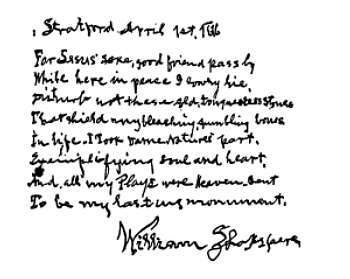 Stratford April 1st,
For Jesus' sake, good friend pass by
While here in peace I lowly lie.
Disturb not these old, tongueless stones
That shield my bleaching, crumbling bones
In life, I took Dame Nature's part,
Exemplifying soul and heart,
And, all my Plays were Heaven-sent
To be my lasting monument.
William Shakspere